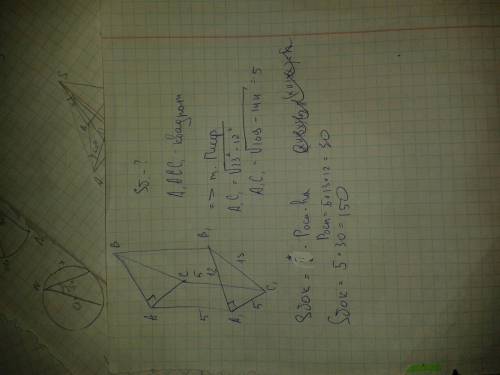 Sб - ?
A₁ACC₁ - квадрат
=> т. Пифаг.
A₁C₁ = √13² - 12²
A₁C₁ = √169 - 144 = 5
B
A
C
5
5
12
B₁
13
A₁
5
C₁
Sбок = Pосн · h
Pосн = 5 + 13 + 12 = 30
Sбок = 5 · 30 = 150